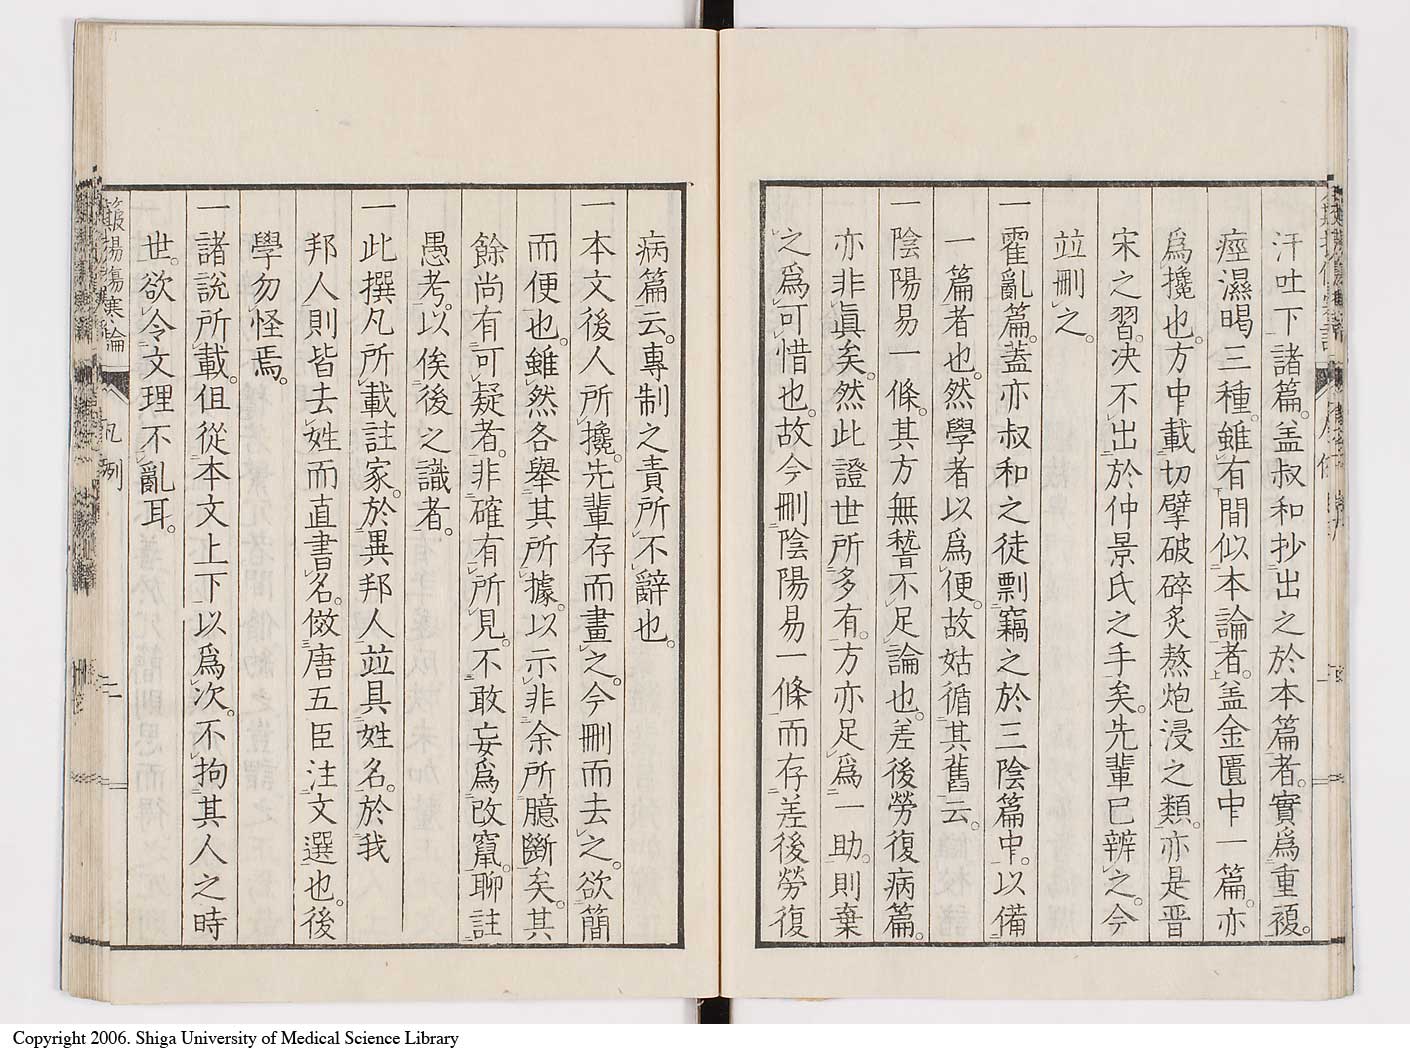 汗吐下諸篇。盖叔和抄出之於本篇者。實爲重複。
痙濕暍三種。雖有間似本論者。盖金匱中一篇。亦
爲攙也。方中載切擘破碎炙熬炮浸之類。亦是晋
宋之習。决不出於仲景氏之手矣。先輩已辨之。今
竝刪之。
一霍亂篇。蓋亦叔和之徒剽竊之於三陰篇中。以備
一篇者也。然學者以爲便。故姑循其舊云。
一陰陽易一條。其方無稽不足論也。差後勞復病篇。
亦非眞矣。然此證世所多有。方亦足爲一助。則棄
之爲可惜也。故今刪陰陽易一條而存差後勞復
病篇云。專制之責所不辭也。
一本文後人所攙。先輩存而畫之。今刪而去之。欲簡
而便也。雖然各舉其所據。以示非余所臆斷矣。其
餘尚有可疑者。非確有所見。不敢妄爲改竄。聊註
愚考。以俟後之識者。
一此撰凡所載註家。於異邦人竝具姓名。於我
邦人則皆去姓而直書名。傚唐五臣注文選也。後
學勿怪焉。
一諸說所載。但從本文上下以爲次。不拘其人之時
世。欲令文理不亂耳。
簸揚傷寒論
凡例
二
Copyright 2006. Shiga University of Medical Science Library